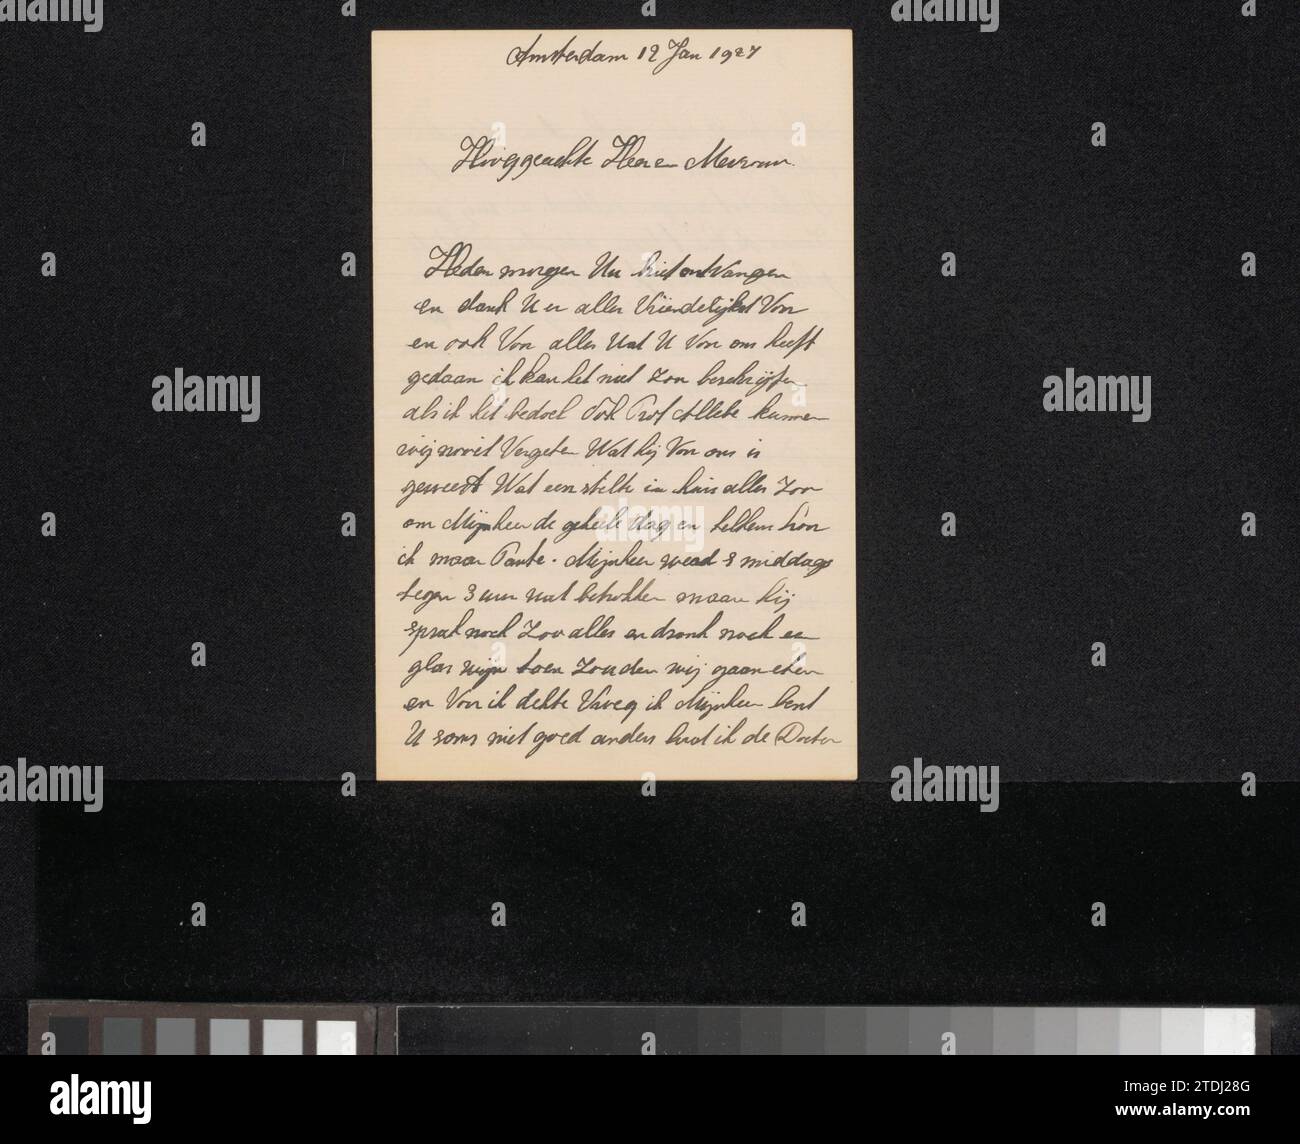 Amsterdam 12 Jan 1927
Hooggeachte Heer en Mevrouw.
Heden morgen Uw brief ontvangen
en dank U er alles Vriendelijkst Voor
en ook Voor alles Wat U Voor ons heeft
gedaan ik kan het niet zoo beschrijfen
als ik het bedoel Ook Prof Allebe kunnen
wij nooit Vergeten Wat hij Voor ons is
geweest Wat een stilte in huis alles zoo
om Mijnheer de geheele dag en telkens hoor
ik maar Tante. Mijnheer werd s middags
tegen 3 uur wat betrokken maar hij
sprak noch Zoo alles en dronk noch een
glas wijn toen Zouden wij gaan eten
en Voor ik dekte Vroeg ik Mijnheer bent
U soms niet goed anders laat ik de Doctor
alamy
Image ID: 2TDJ28G
www.alamy.com